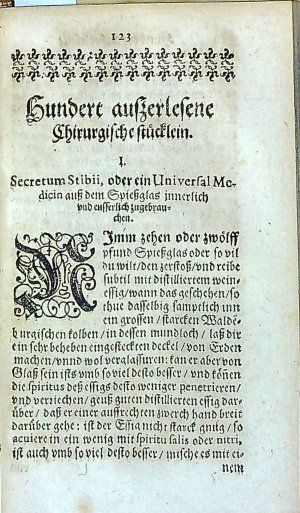 123
Hundert außerlesene
Chirurgische stücklein.
I.
Secretum Stibii, oder ein Universal Me-
dicin auß dem Spießglas innerlich
vnd eusserlich zugebrau-
chen.
NImm zehen oder zwölff
pfund Spießglas oder so vil
du wilt/den zerstoß/vnd reibe
subtil mit distilliertem wein-
essig/wann das geschehen/so
thue dasselbig samptlich inn
ein grossen/starcken Walde-
burgischen kolben/in dessen mundloch/laß dir
ein sehr beheben eingesteckten deckel/von Erden
machen/vnnd wol verglasuren: kan er aber von
Glaß sein ists vmb so viel desto besser/vnd könen
die spiritus deß essigs desto weniger penetrieren/
vnd verriechen/geuß guten distillierten essig dar-
über/daß er einer auffrechten zwerch hand breit
darüber gehe: ist der Essig nicht starck gnug/so
acuiere in ein wenig mit spiritu salis oder nitri,
ist auch vmb so viel desto besser/mische es mit ei-
nem